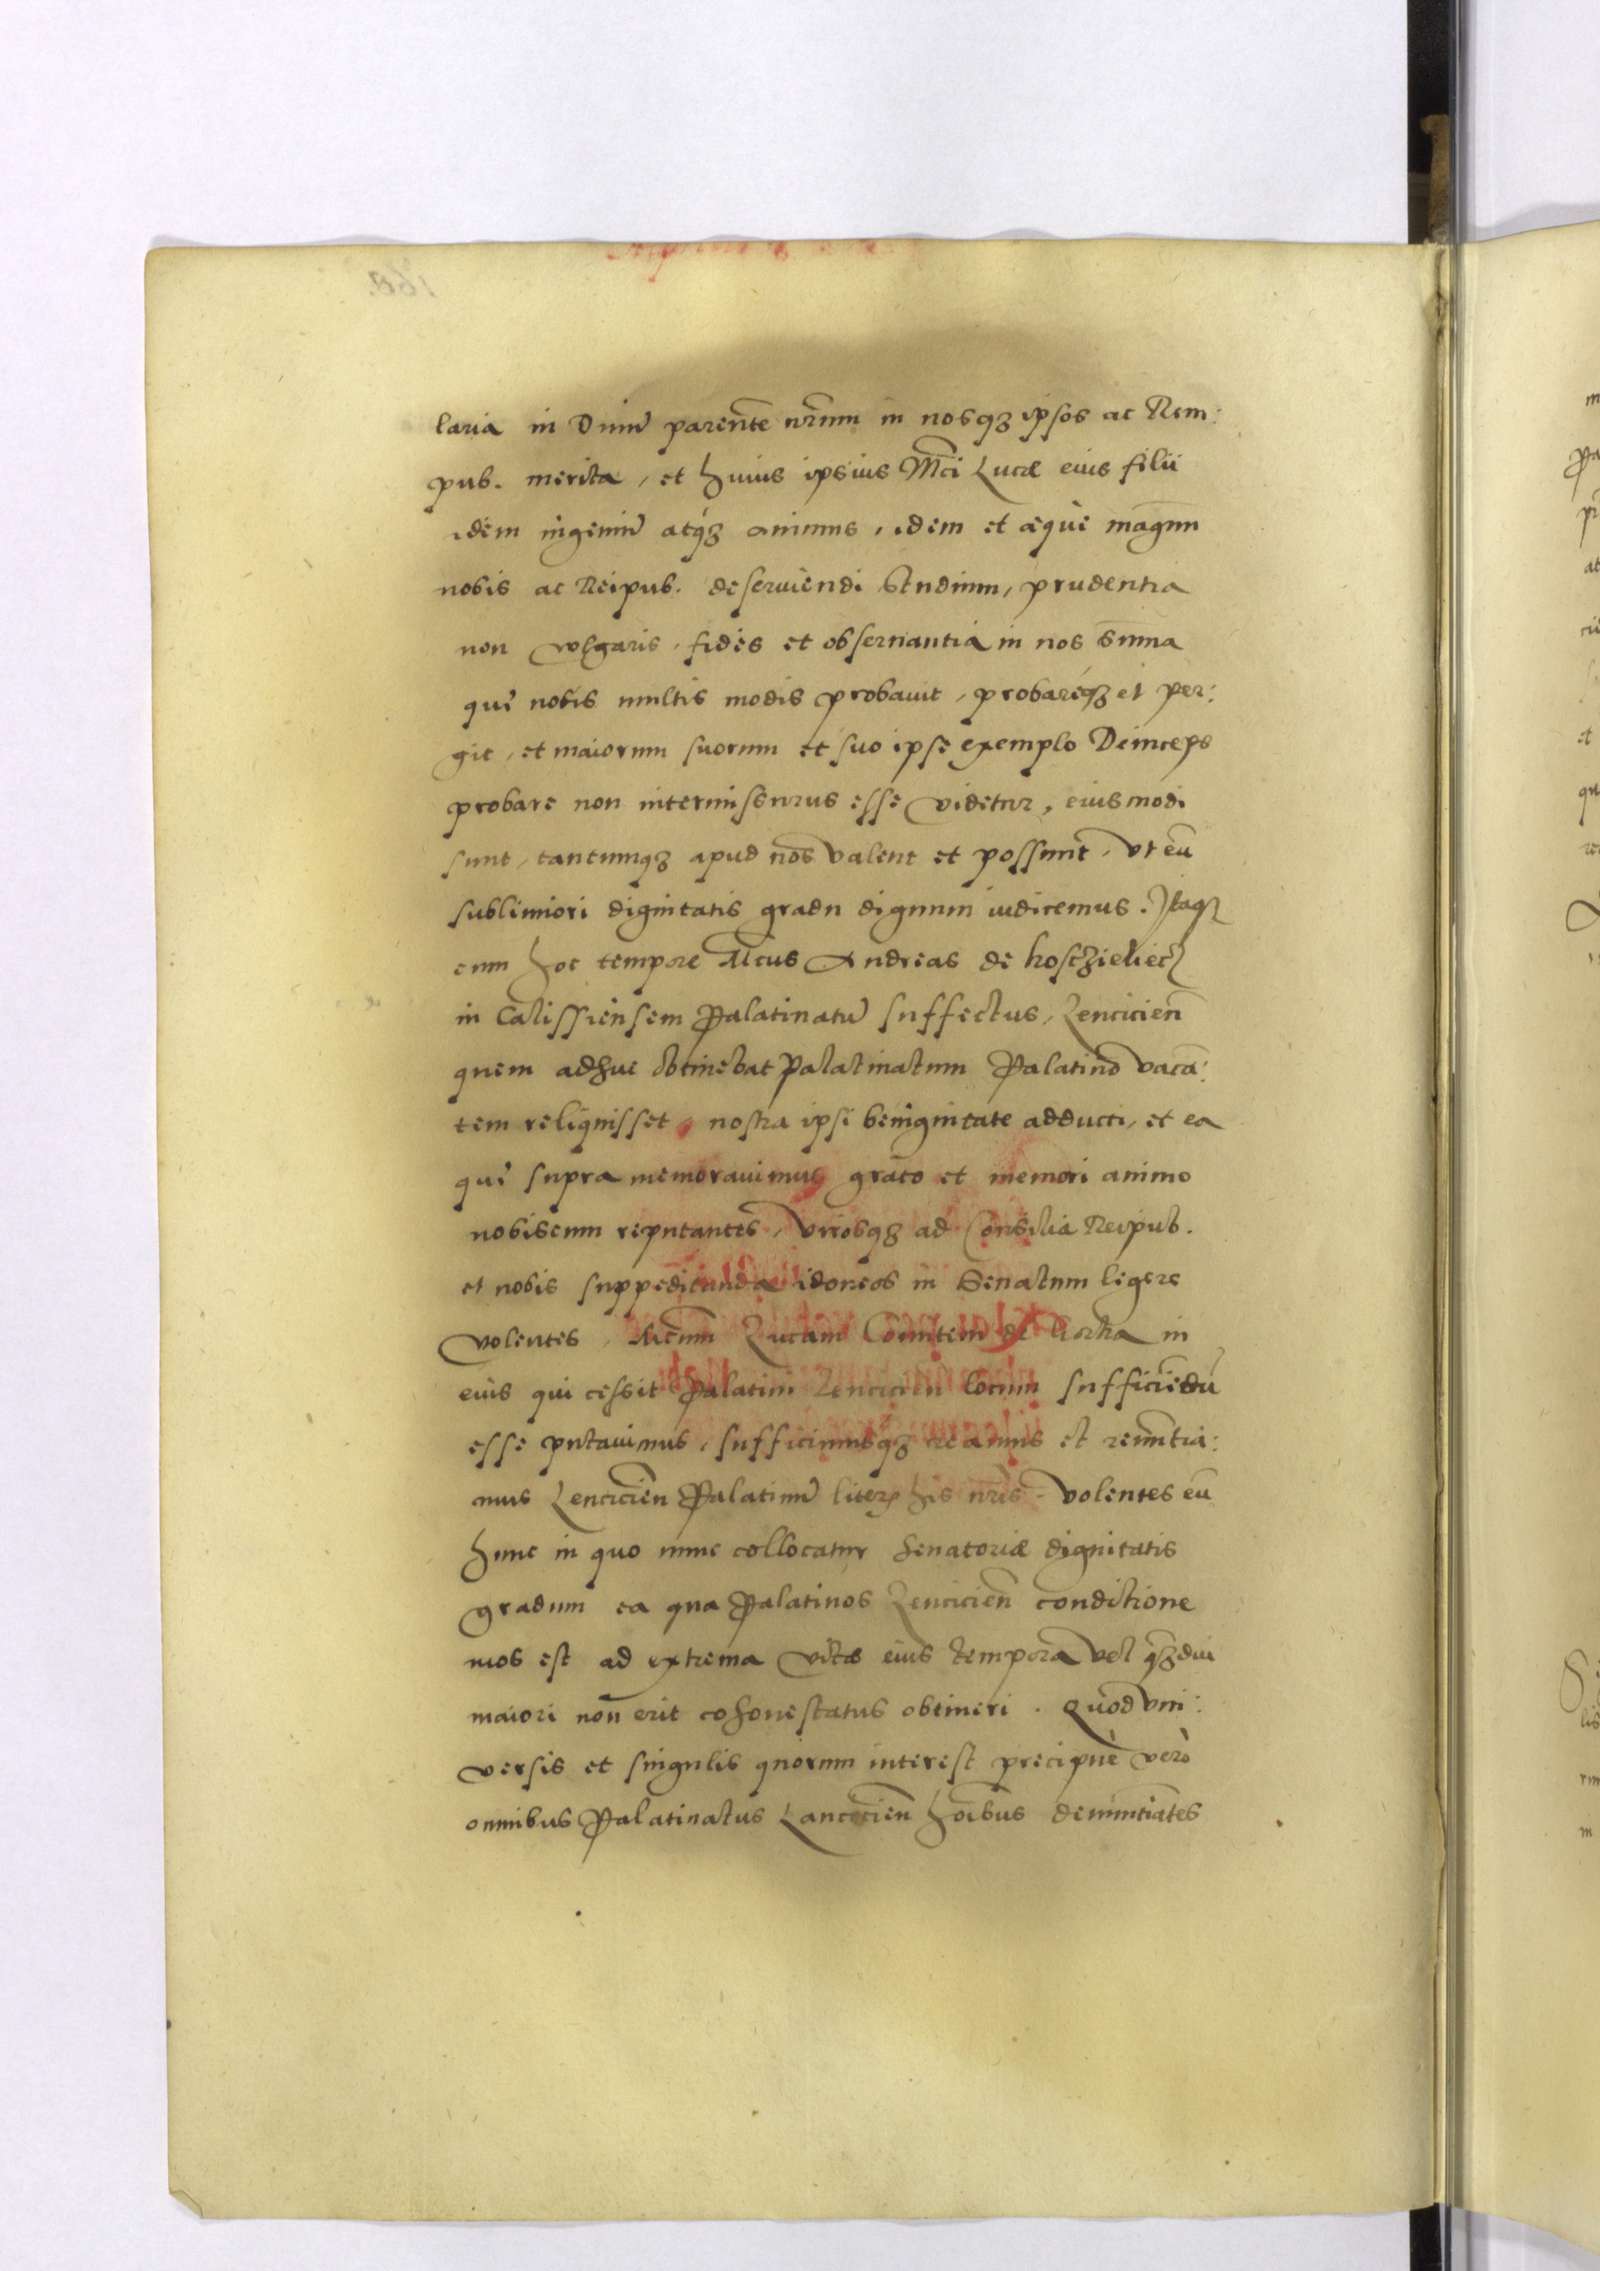 laria in Diuũ parente nrm̃ in nosqȝ ipsos ac Rem:
pub. merita, et huius ipsius Mci Lucæ eius filii
idem ingeniũ atqȝ animus, idem et æquè magnũ
nobis ac Reipub. deseruiendi studium, prudentia
non vulgaris, fides et obseruantia in nos sũma
quę nobis multis modis probauit, probareqȝ et per:
git, et maiorum suorum et suo ipse exemplo Deinceps
probare non intermissurus esse videtur, eiusmodi
sunt, tantumqȝ apud nos valent et possunt, vt eũ
sublimiori dignitatis gradu dignum iudicemus. Itaqȝ
cum hoc tempore Mcus Andreas de Kosczieliecz
in Calissiensem Palatinatũ suffectus, Lencicien̄
quem adhuc obtinebat Palatinatum Palatino vacã:
tem reliquisset, nostra ipsi benignitate adducti, et ea
quę supra memorauimus grato et memori animo
nobiscum reputantes, virosqȝ ad Consilia Reipub.
et nobis suppeditanda idoneos in Senatum legere
volentes, Mcum Lucam Comitem de Gorka in
eius qui cessit Palatini Lencicien locum sufficiẽdũ
esse putauimus, sufficimusqȝ creamus et renũtia:
mus Lencicien̄ Palatinũ literis his nris. Volentes eũ
hunc in quo nunc collocatur Senatoriæ dignitatis
gradum ea qua Palatinos Lencicien̄ conditione
mos est ad extrema vitæ eius tempora vel qȝdiu
maiori non erit cohonestatus obtineri. Quod vni:
versis et singulis quorum interest precipuè verò
omnibus Palatinatus Lancicien̄ hoĩbus denũtiãtes